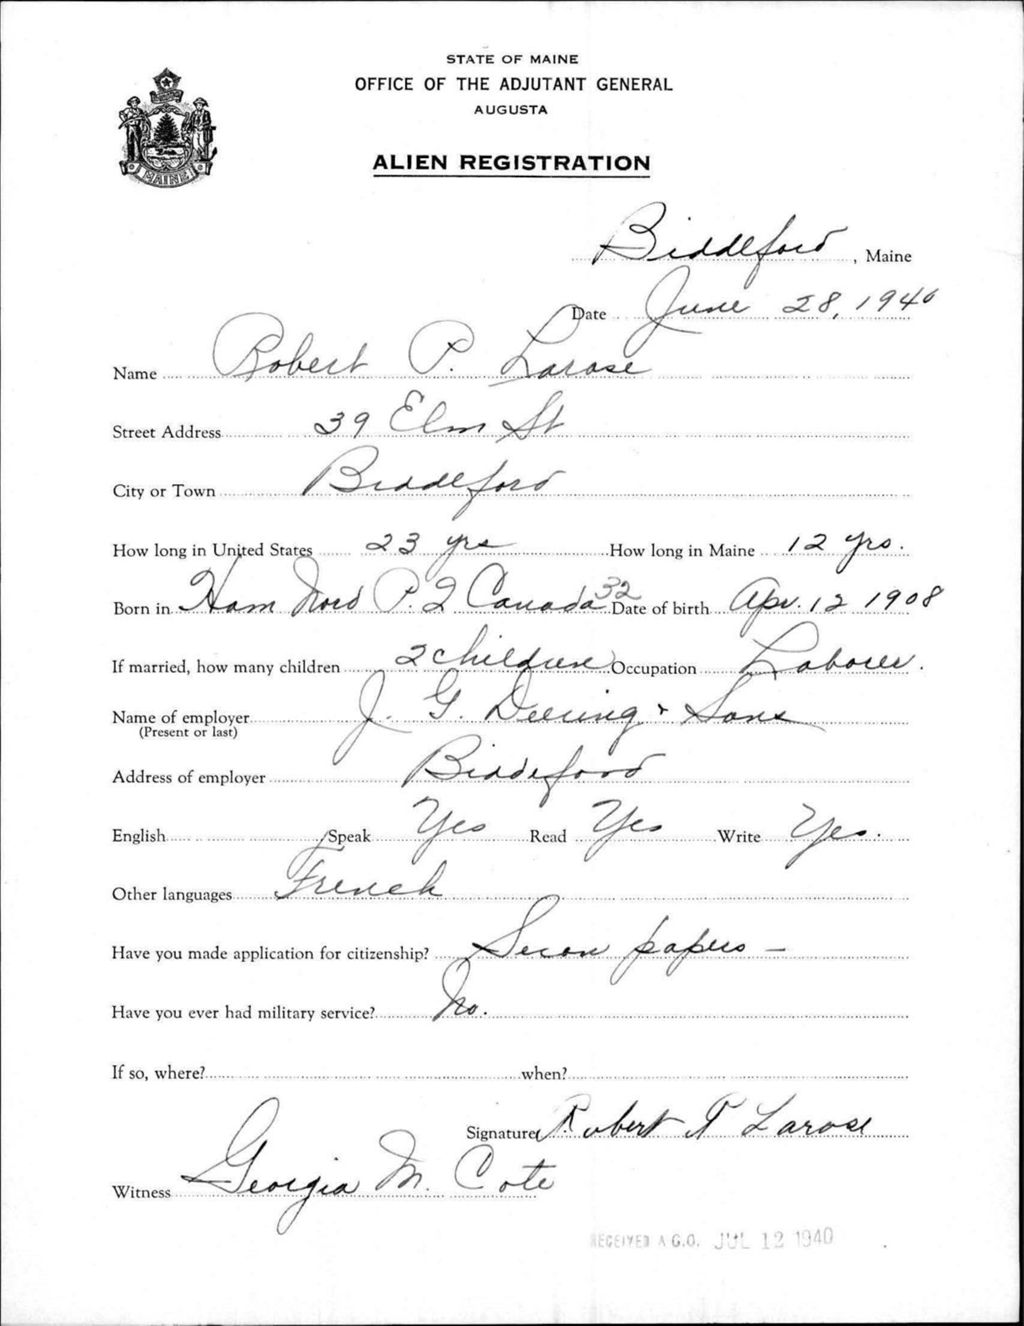 STATE OF MAINE
OFFICE OF THE ADJUTANT GENERAL
AUGUSTA
ALIEN REGISTRATION
MAINE
Biddeford, Maine
Date June 28, 1940
Name Robert P. Larose
Street Address 39 Elm St
City or Town Biddeford
How long in United States 23 yrs How long in Maine 12 yrs.
Born in Ham Nord P.Q Canada 32 Date of birth Apr. 12 1908
If married, how many children 2 children Occupation Laborer.
Name of employer J. G. Deering & Sons
(Present or last)
Address of employer Biddeford
English Speak Yes Read Yes Write Yes.
Other languages French
Have you made application for citizenship? Secon papers -
Have you ever had military service? No.
If so, where? when?
Signature Robert P Larose
Witness Georgia M. Cote
RECEIVED A.G.O. JUL 12 1940